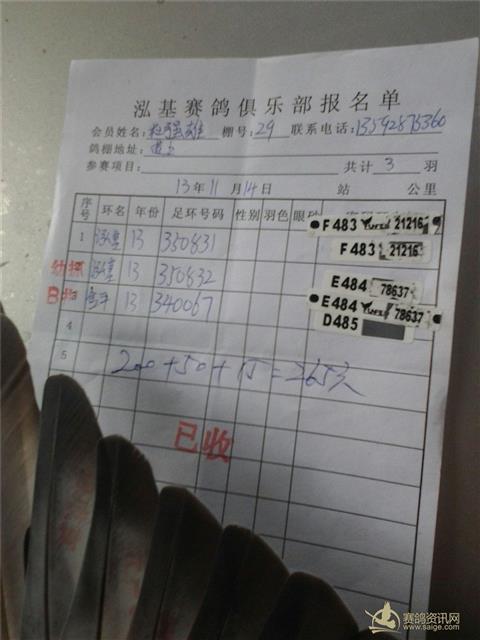 泓基赛鸽俱乐部报名单
会员姓名: 棚号:29 联系电话:13592873360
鸽棚地址:
参赛项目: 共计 3 羽
13年11月14日 站 公里
序号 环名 年份 足环号码 性别 羽色 眼砂
1 泓基 13 350831
泓基 13 350832
13 340067
4
5
F483 21216
F483 21216
E484 78637
E484 78637
D485
200+50+15=265元
已收
赛鸽资讯网
www.saige.com